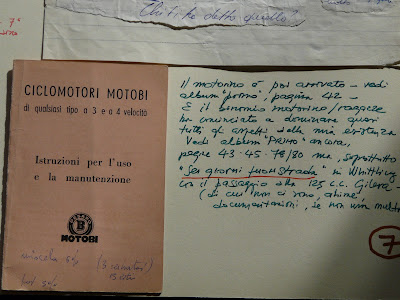 Chi ti ha detto quello?
7°
CICLOMOTORI MOTOBI
di qualsiasi tipo a 3 e a 4 velocità
Istruzioni per l'uso
e la manutenzione
B
MOTOBI
miscela 5%
(3 carati)
Il motorino è poi arrivato - vedi
album "primo", pagina 42 -
E il binomio motorino/ragazze
ha cominciato a dominare quasi
tutti gli aspetti della mia esistenza
Vedi album "PRIMO" ancora,
pagine 43-45-78/80 ma, soprattutto
"Sei giorni fuoristrada" in
con il passaggio alla 125 c.c. Gilera -
(di cui non ci sono, ahimè,
documentazioni, se non una multa
7